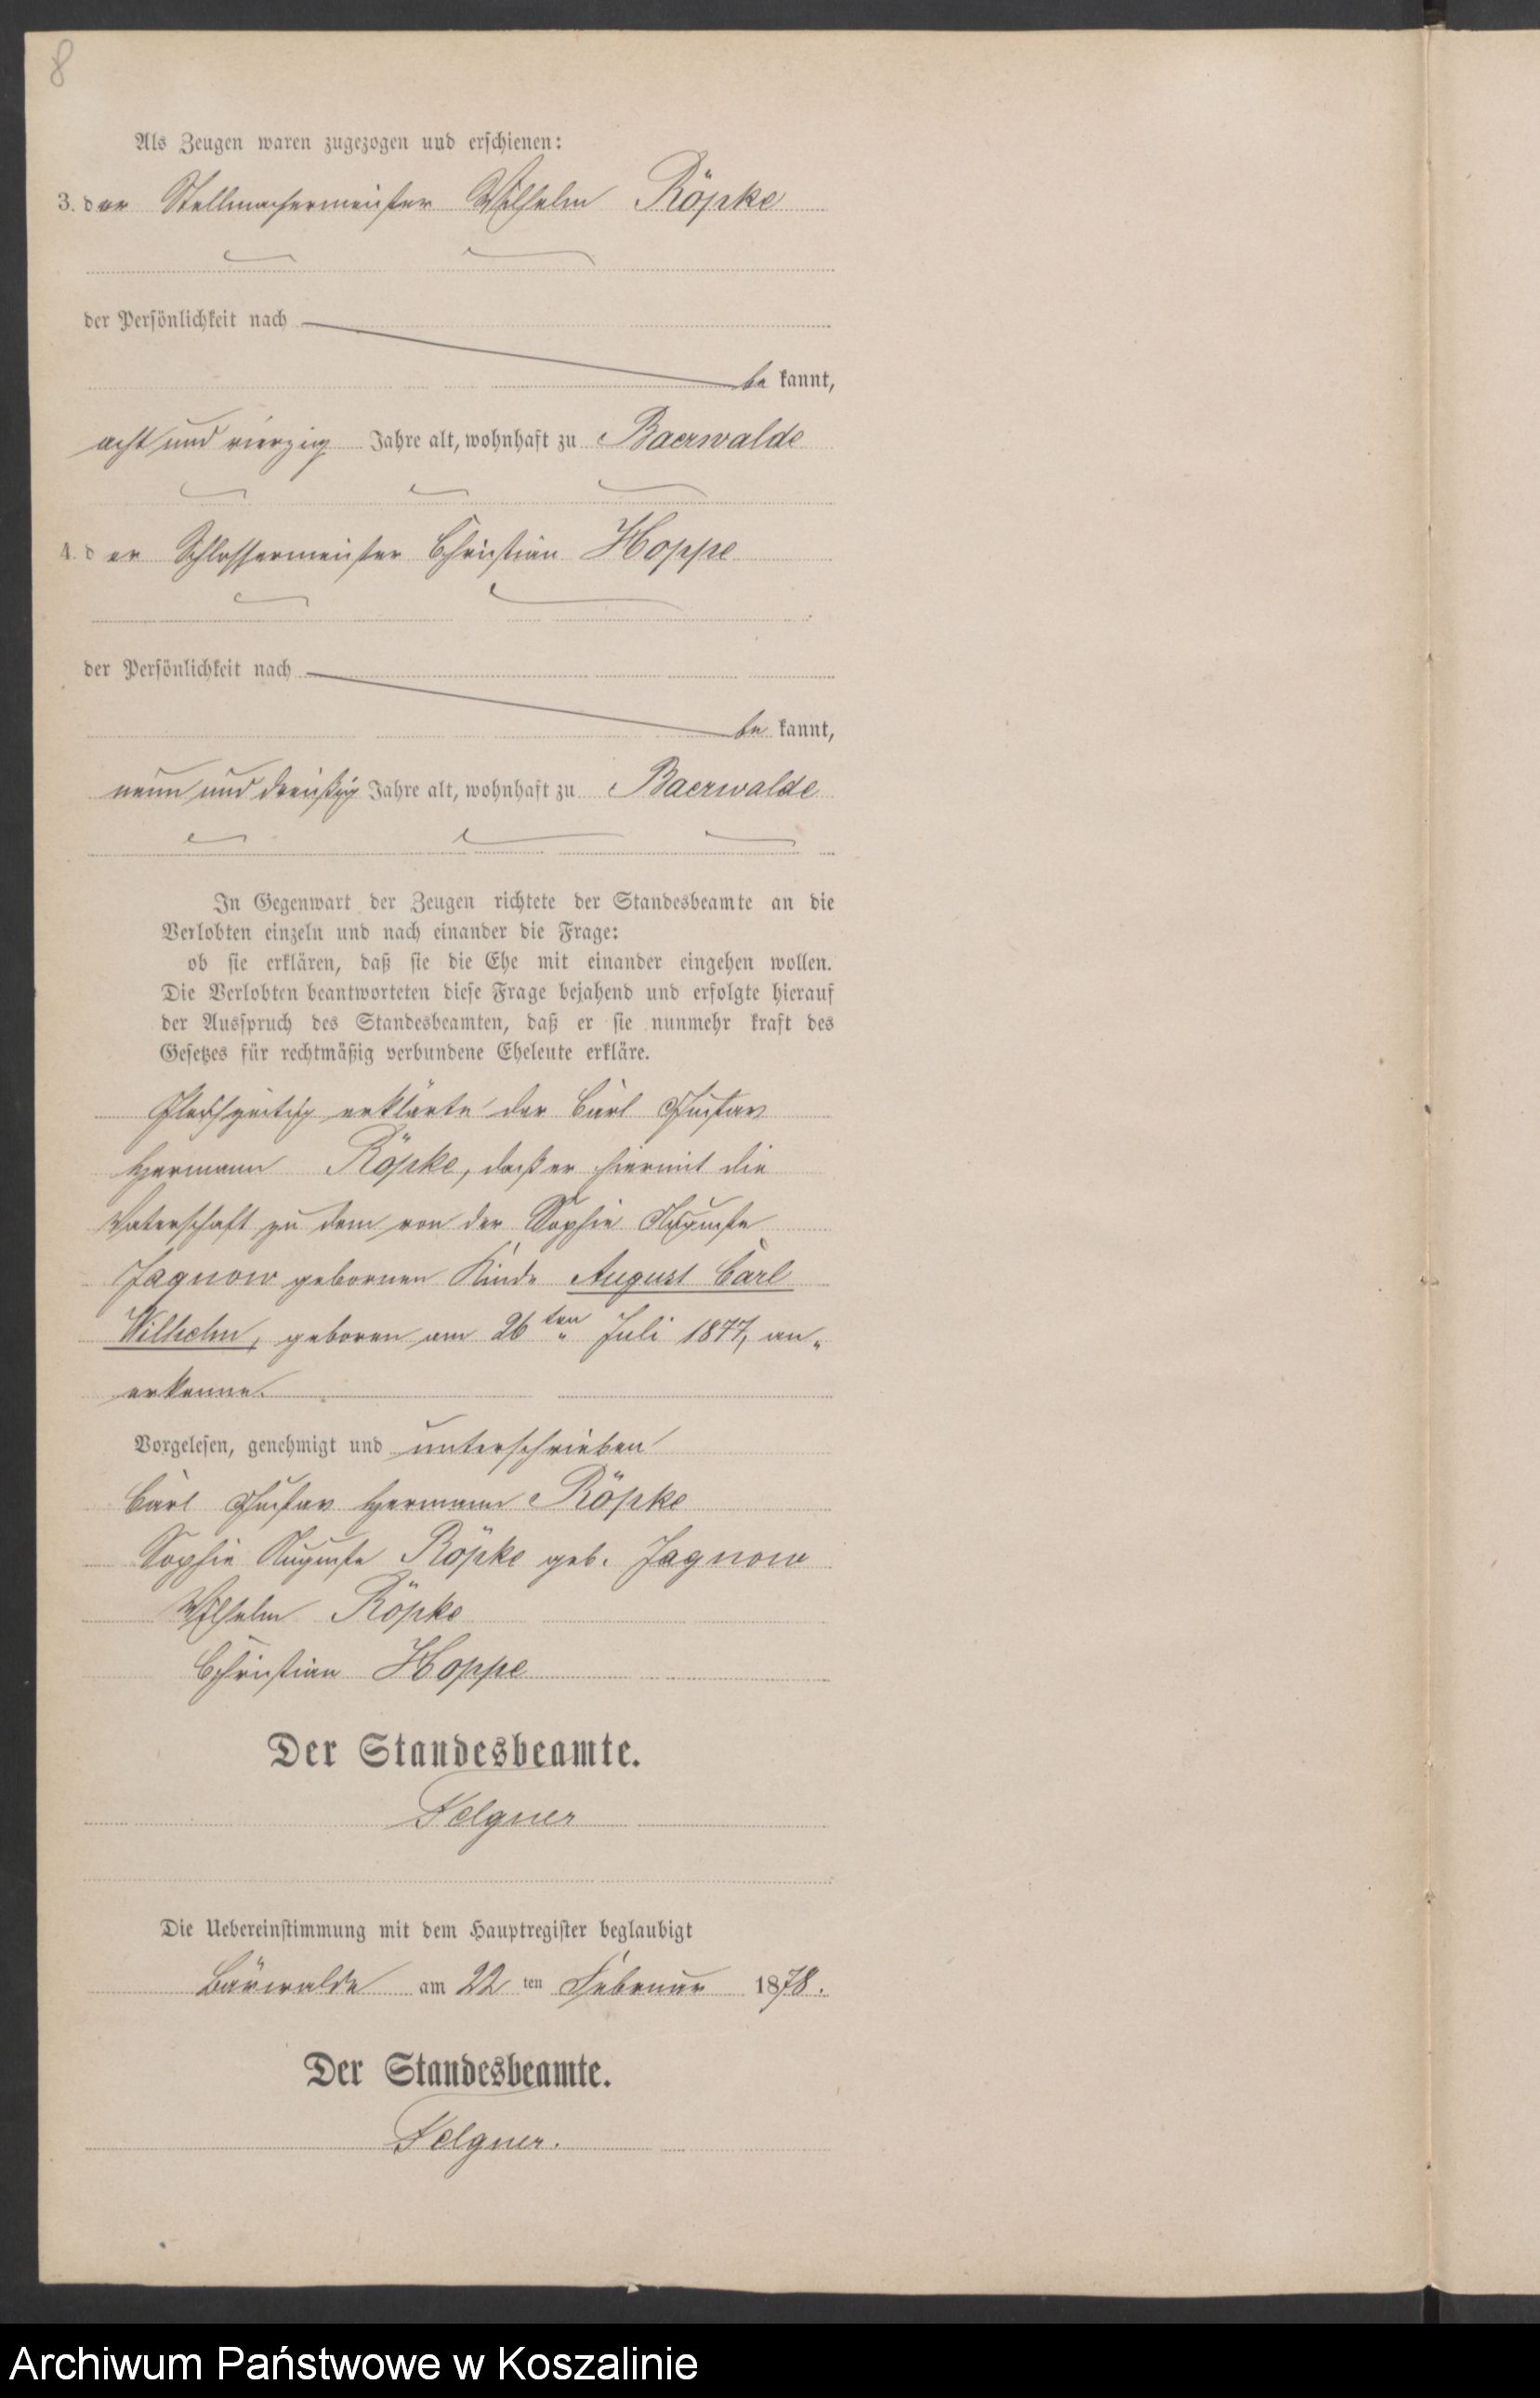 8
Als Zeugen waren zugezogen und erschienen:
3. der Stellmachermeister Wilhelm Röpke
der Persönlichkeit nach
be kannt,
acht und vierzig Jahre alt, wohnhaft zu Baerwalde
4. der Schlossermeister Christian Hoppe
der Persönlichkeit nach
be kannt,
neun und dreißig Jahre alt, wohnhaft zu Baerwalde
In Gegenwart der Zeugen richtete der Standesbeamte an die
Verlobten einzeln und nach einander die Frage:
ob sie erklären, daß sie die Ehe mit einander eingehen wollen.
Die Verlobten beantworteten diese Frage bejahend und erfolgte hierauf
der Ausspruch des Standesbeamten, daß er sie nunmehr kraft des
Gesetzes für rechtmäßig verbundene Eheleute erkläre.
Gleichzeitig erklärte der Carl Gustav
Hermann Röpke, daß er hiermit die
Vaterschaft zu dem von der Sophie Auguste
Jagnow gebornen Kinde August Carl
Wilhelm, geboren am 26ten Juli 1877, an„
erkenne.
Vorgelesen, genehmigt und unterschrieben
Carl Gustav Hermann Röpke
Sophie Auguste Röpke geb. Jagnow
Wilhelm Röpke
Christian Hoppe
Der Standesbeamte.
Felgner
Die Uebereinstimmung mit dem Hauptregister beglaubigt
Bärwalde am 22 ten Februar 1878.
Der Standesbeamte.
Felgner.
Archiwum Państwowe w Koszalinie